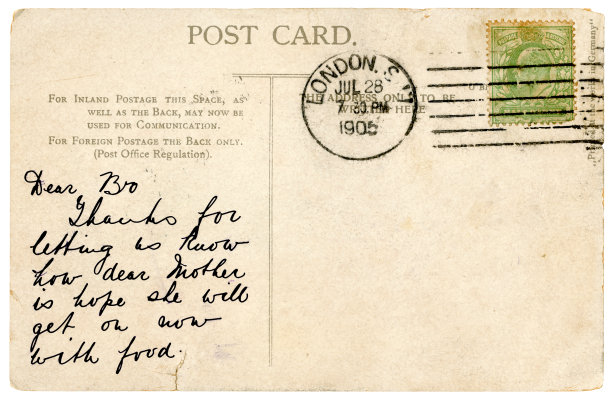 POST CARD.
LONDON. S.W
JUL 28
7 30 PM
1905
FOR INLAND POSTAGE THIS SPACE, AS
WELL AS THE BACK, MAY NOW BE
USED FOR COMMUNICATION.
FOR FOREIGN POSTAGE THE BACK ONLY.
(Post Office Regulation).
THE ADDRESS ONLY TO BE
WRITTEN HERE
Germany"
Dear Bro
Thanks for
letting us know
how dear Mother
is hope she will
get on now
with food.